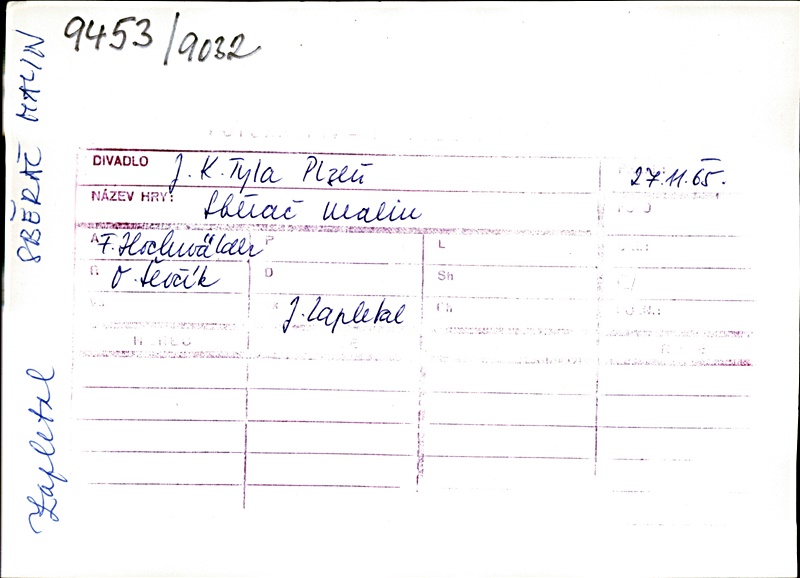 9453/9032
SBĚRAČ MALIN
Zapletal
DIVADLO J. K. Tyla Plzeň 27.11.65.
NÁZEV HRY: Sběrač malin
A F. Hochwälder P L
R O. Ševčík D Sh
K J. Zapletal Ch